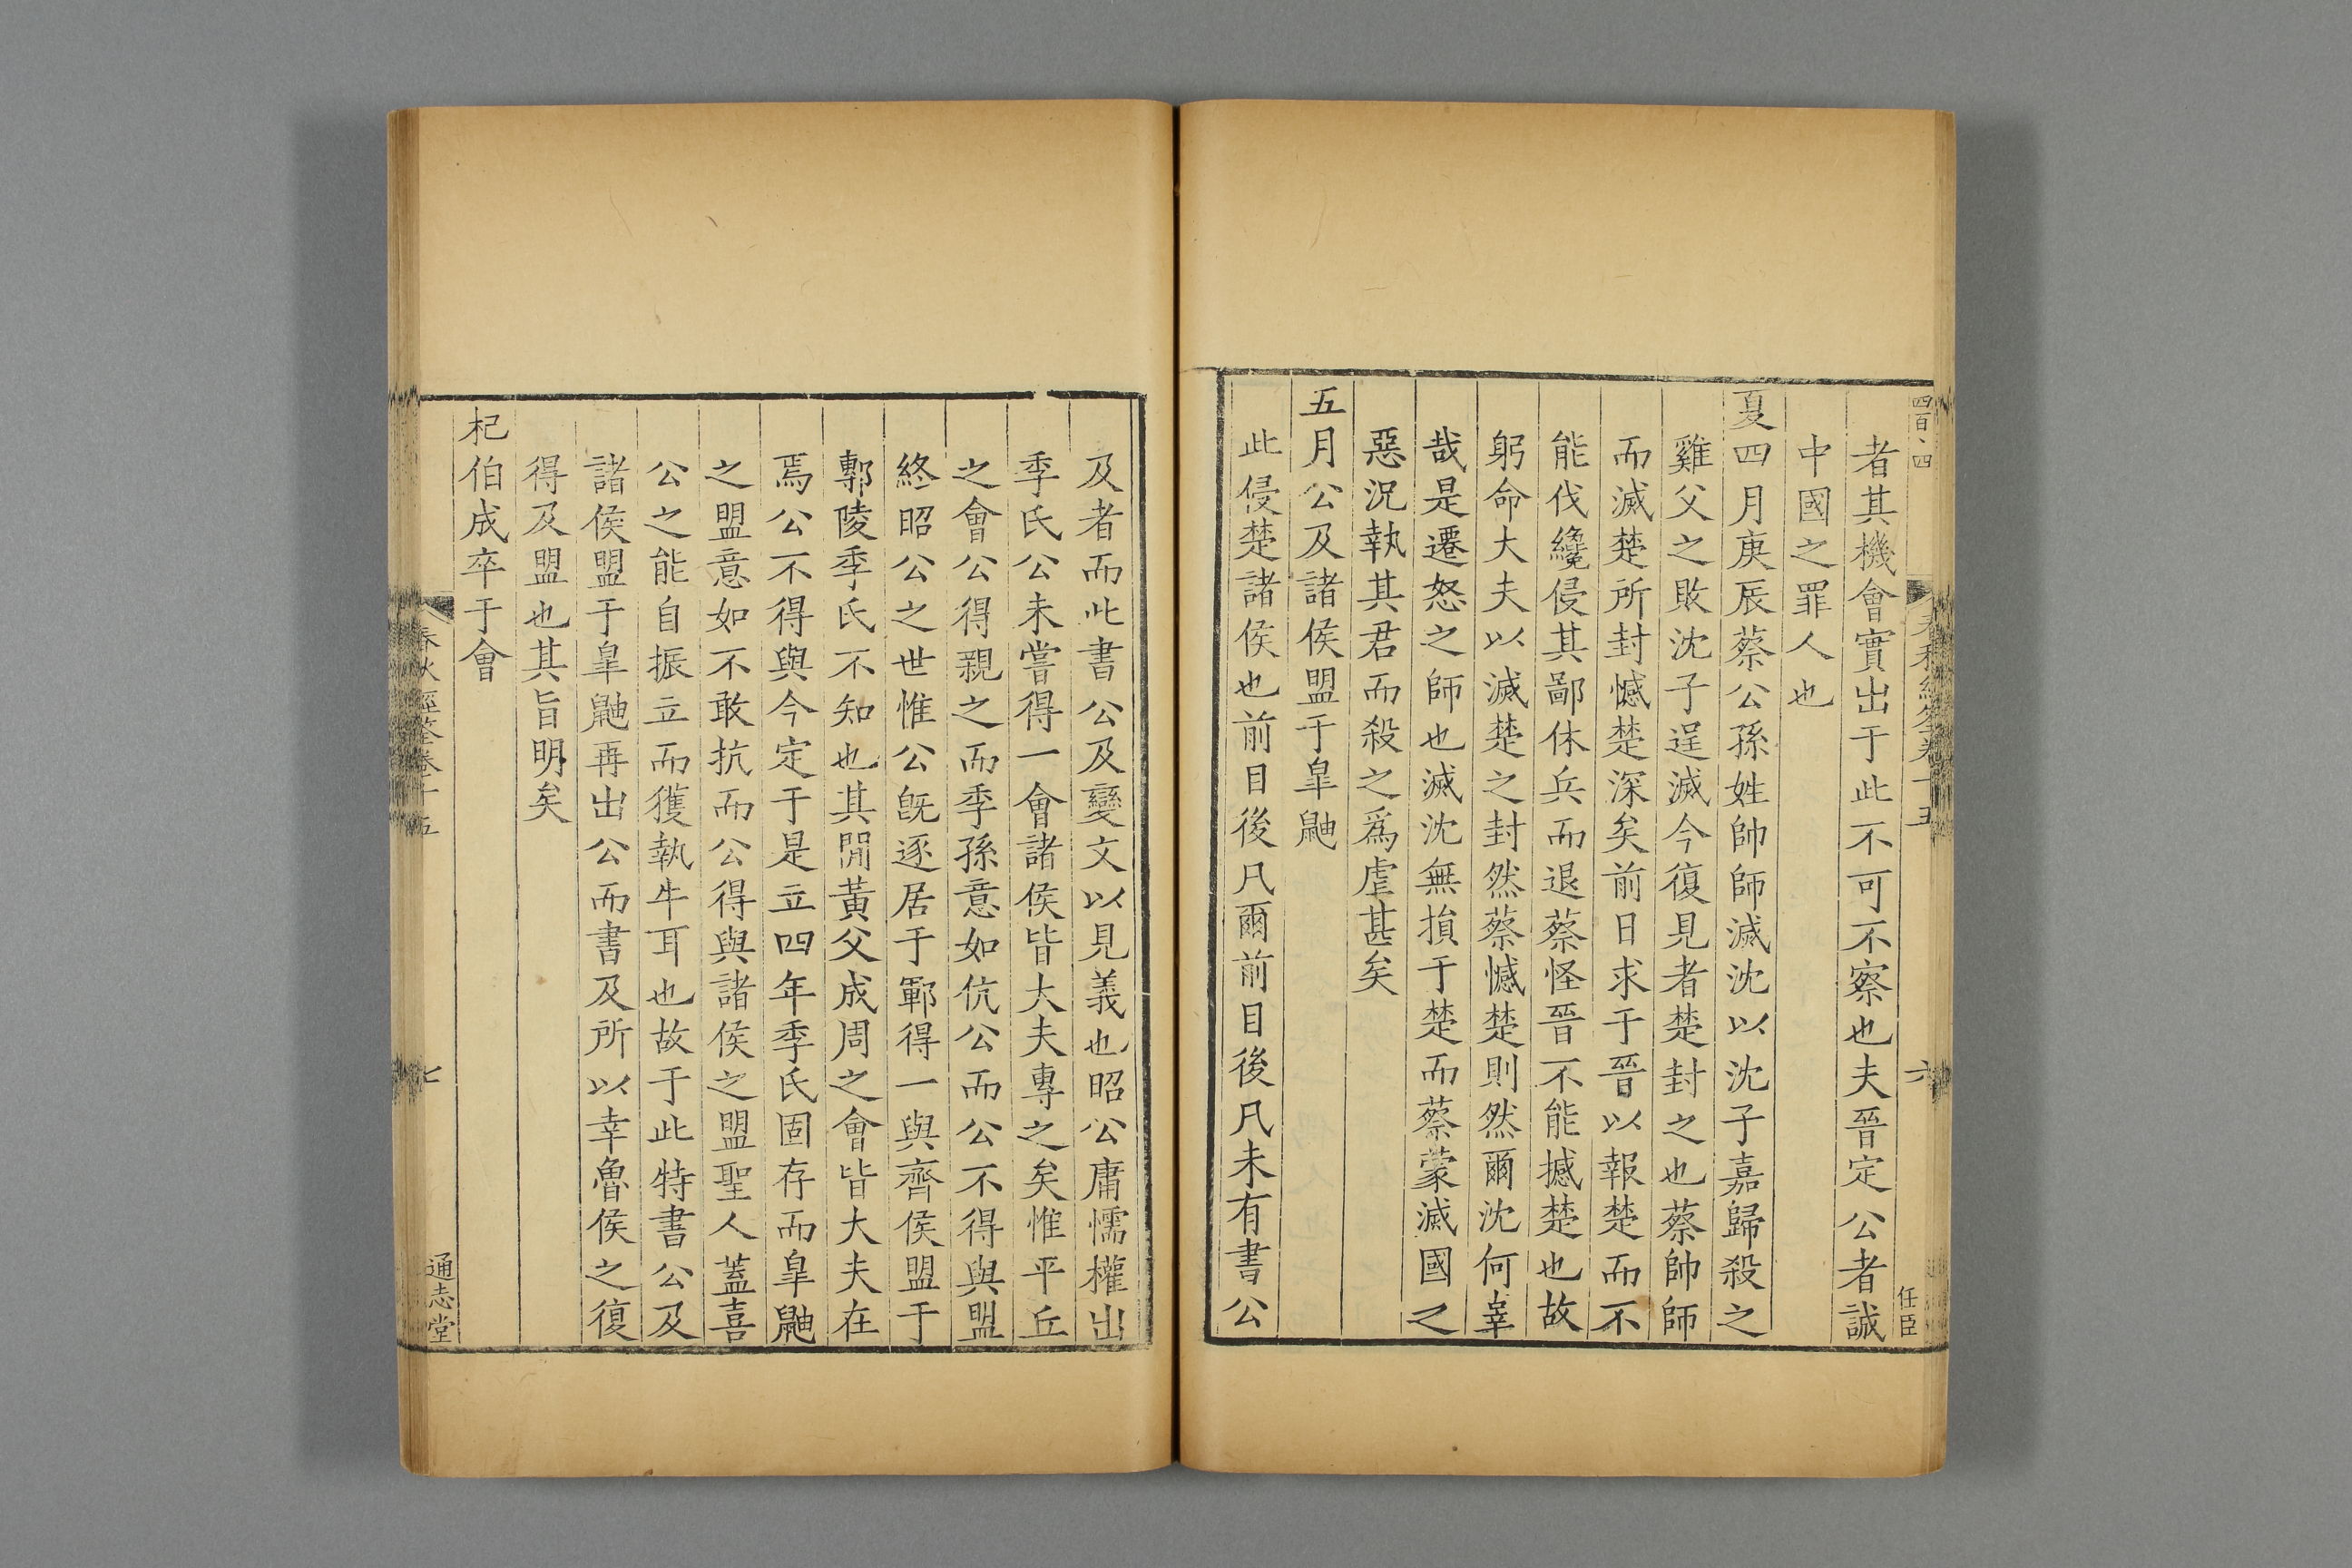 四百四
春秋經筌卷十五
六
任臣
者其機會實出于此不可不察也夫晉定公者誠
中國之罪人也
夏四月庚辰蔡公孫姓帥師滅沈以沈子嘉歸殺之
雞父之敗沈子逞滅今復見者楚封之也蔡帥師
而滅楚所封憾楚深矣前日求于晉以報楚而不
能伐纔侵其鄙休兵而退蔡怪晉不能撼楚也故
躬命大夫以滅楚之封然蔡憾楚則然爾沈何辜
哉是遷怒之師也滅沈無損于楚而蔡蒙滅國之
惡況執其君而殺之爲虐甚矣
五月公及諸侯盟于臯鼬
此侵楚諸侯也前目後凡爾前目後凡未有書公
及者而此書公及變文以見義也昭公庸懦權出
季氏公未嘗得一會諸侯皆大夫專之矣惟平丘
之會公得親之而季孫意如伉公而公不得與盟
終昭公之世惟公旣逐居于鄆得一與齊侯盟于
鄟陵季氏不知也其閒黃父成周之會皆大夫在
焉公不得與今定于是立四年季氏固存而臯鼬
之盟意如不敢抗而公得與諸侯之盟聖人蓋喜
公之能自振立而獲執牛耳也故于此特書公及
諸侯盟于臯鼬再出公而書及所以幸魯侯之復
得及盟也其旨明矣
杞伯成卒于會
春秋經筌卷十五
七
通志堂